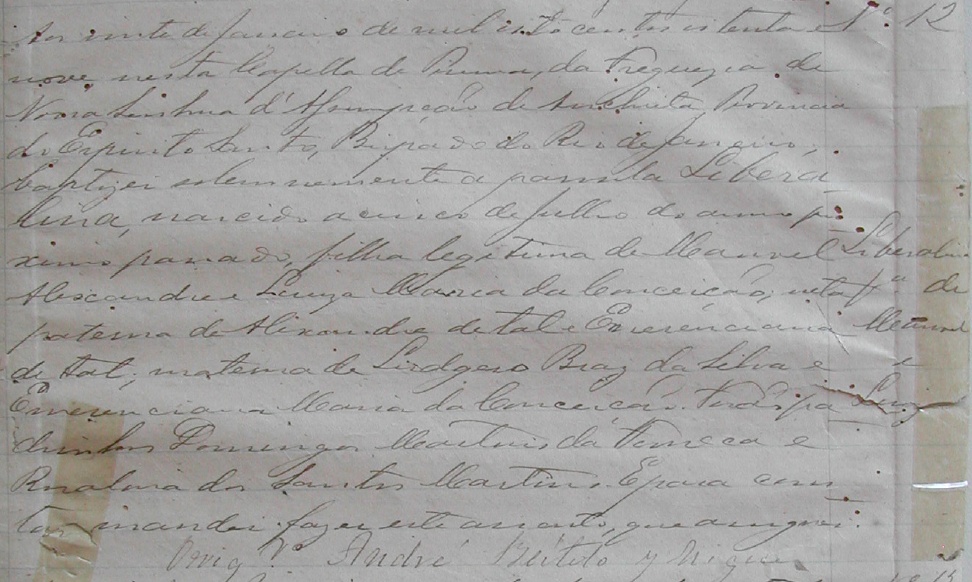 Aos vinte de Janeiro de mil oito centos e setenta e Nº 12
nove nesta Capella de Piuma, da Freguezia de
Nossa Senhora d'Assumpcão de Anchieta Provincia
do Espirito Santo, Bispado do Rio de Janeiro,
baptizei solemnemente a parvula Libera
lina, nascida a cinco de Julho do anno pro
ximo passado, filha legitima de Manoel Liberalina
Alexandre e Luiza Maria da Conceicão, neta fª de
paterna de Alixandre de tal e Emerenciana Manoel
de tal, materna de Braz da Silva e e
Emerenciana Maria da Conceicão. Forão pa Luiza
drinhos Domingos Martins da Fonseca e
Rosalina dos Santos Martins. E para cons
tar mandei fazer este assento, que assignei.
Vig.º André